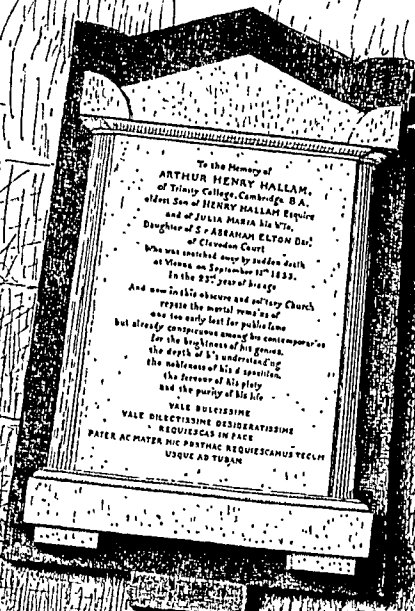 To the Memory of
ARTHUR HENRY HALLAM,
of Trinity College, Cambridge B.A.
eldest Son of HENRY HALLAM Esquire
and of JULIA MARIA his Wife,
Daughter of Sr ABRAHAM ELTON Bart
of Clevedon Court
Who was snatched away by sudden death
at Vienna on September 15th 1833.
In the 23rd year of his age
And now in this obscure and solitary Church
repose the mortal remains of
one too early lost for public fame
but already conspicuous among his contemporaries
for the brightness of his genius,
the depth of his understanding
the nobleness of his disposition,
the fervour of his piety
and the purity of his life
VALE DULCISSIME
VALE DILECTISSIME DESIDERATISSIME
REQUIESCAS IN PACE
PATER AC MATER HIC POSTHAC REQUIESCAMUS TECUM
USQUE AD TUBAM